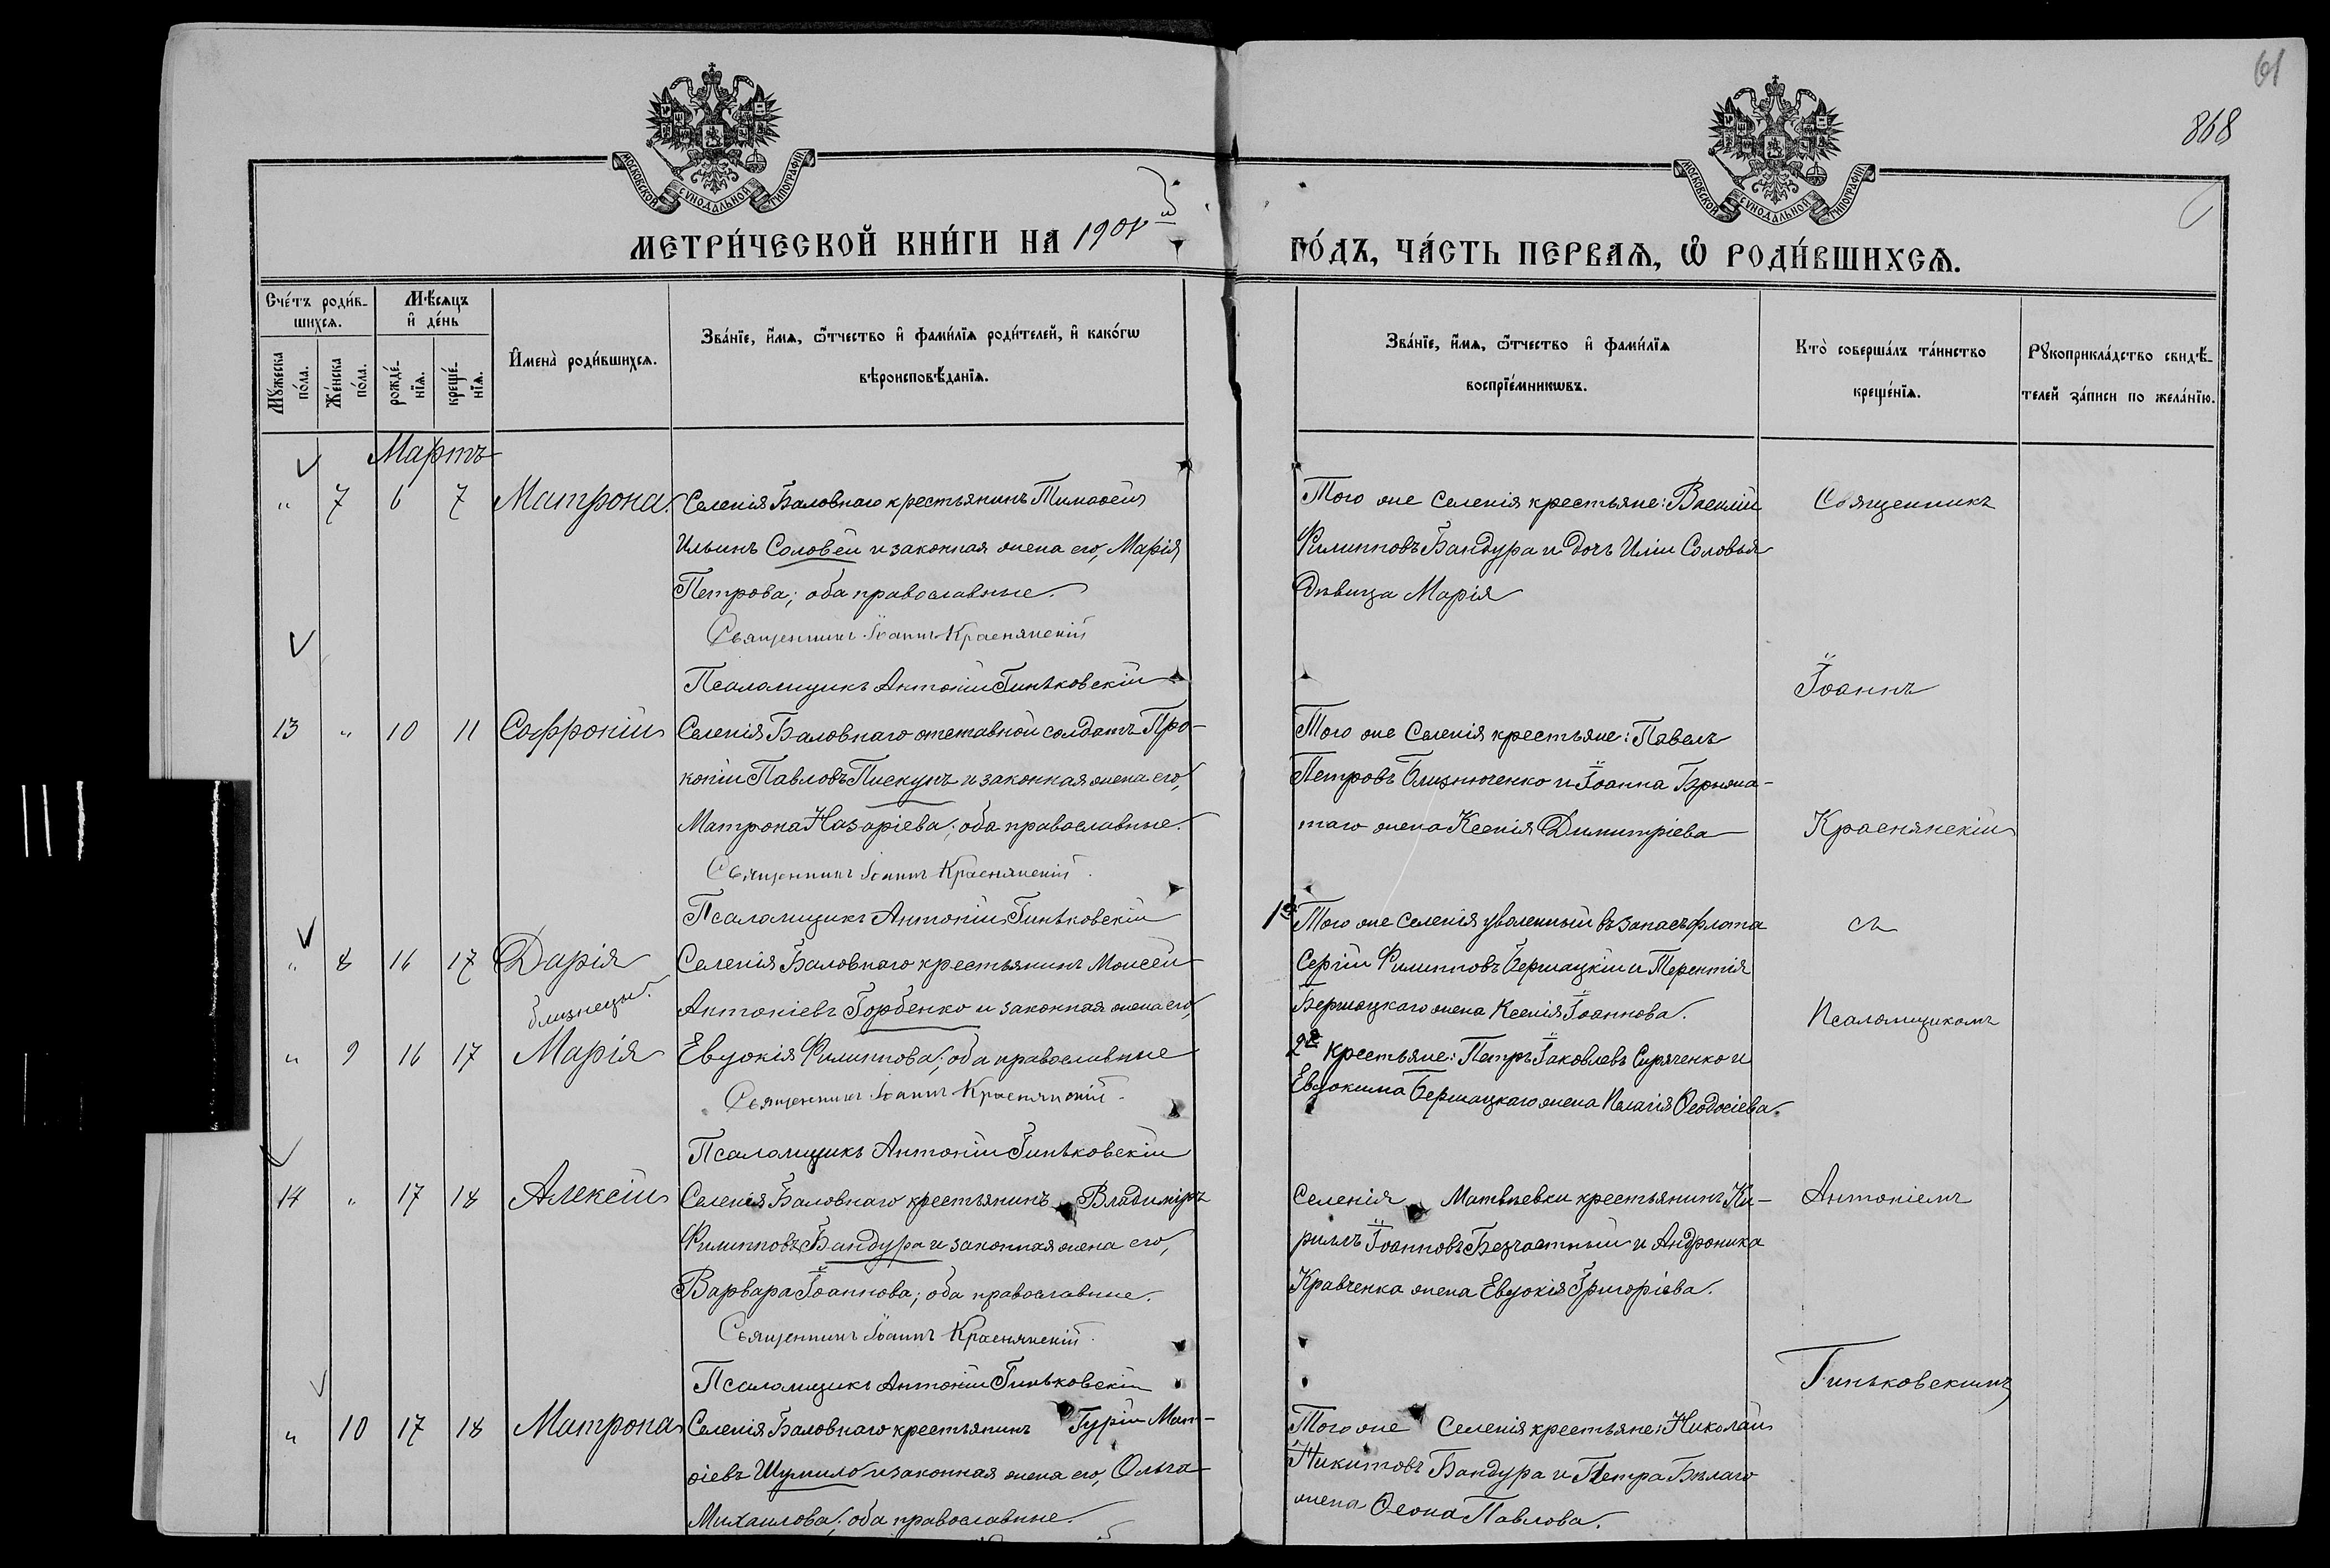 61
868
МОСКОВСКОЙ СѴНОДАЛЬНОЙ ТИПОГРАФІИ
МОСКОВСКОЙ СѴНОДАЛЬНОЙ ТИПОГРАФІИ
МЕТРИ́ЧЕСКОЙ КНИ́ГИ НА 1901й
ГО́ДЪ, ЧА́СТЬ ПЕРВАѦ, Ѡ҆ РОДИ́ВШИХСѦ.
Сче́тъ роди́в-
шихсѧ.
Мꙋ́жеска
по́ла.
Же́нска
по́ла.
Мѣ́сѧцъ
и҆ де́нь
рожде́-
нїѧ.
креще́-
нїѧ.
И҆мена̀ роди́вшихсѧ.
Зва́нїе, и҆́мѧ, ѻ҆́тчество и҆ фами́лїѧ роди́телей, и҆ како́гѡ
вѣроисповѣ́данїѧ.
Зва́нїе, и҆́мѧ, ѻ҆́тчество и҆ фами́лїѧ
воспрїе́мникѡвъ.
Кто̀ соверша́лъ та́инство
креще́нїѧ.
Рꙋкоприкла́дство свидѣ́-
телей за́писи по жела́нїю.
Мартъ
" 7 6 7 Матрона. Селенія Баловнаго крестьянинъ Тимоѳей
Ильинъ Соловей и законная жена его, Марія
Петрова; оба православные.
Священникъ Іоаннъ Краснянскій
Псаломщикъ Антоній Гиньковскій
Того же селенія крестьяне: Василій
Филипповъ Бандура и дочь Иліи Соловья
дѣвица Марія
Священникъ
Іоаннъ
13 " 10 11 Софроній Селенія Баловнаго отставной солдатъ Про-
копій Павловъ Пискунъ и законная жена его,
Матрона Назаріева; оба православные.
Священникъ Іоаннъ Краснянскій.
Псаломщикъ Антоній Гиньковскій
Того же селенія крестьяне: Павелъ
Петровъ Близнюченко и Іоанна
таго жена Ксенія Димитріева
Краснянскій
съ
" 8 16 17 Дарія Селенія Баловнаго крестьянинъ Моисей
близнецы. Антоніевъ Горбенко и законная жена его,
" 9 16 17 Марія Евдокія Филиппова; оба православные
Священникъ Іоаннъ Краснянскій.
Псаломщикъ Антоній Гиньковскій
1й Того же селенія уволенный въ запасъ флота
Сергій Филипповъ Бершацкій и Терентія
Бершацкаго жена Ксенія Іоаннова.
2й крестьяне: Петръ Іаковлевъ Сиряченко и
Евдокима Бершацкаго жена Пелагія Ѳеодосіева.
Псаломщикомъ
14 " 17 18 Алексій Селенія Баловнаго крестьянинъ Владиміръ
Филипповъ Бандура и законная жена его,
Варвара Іоаннова; оба православные.
Священникъ Іоаннъ Краснянскій.
Псаломщикъ Антоній Гиньковскій
Селенія Матвѣевки крестьянинъ Ки-
риллъ Іоанновъ Безчастный и Андроника
Кравченка жена Евдокія Григоріева.
Антоніемъ
Гиньковскимъ
" 10 17 18 Матрона Селенія Баловнаго крестьянинъ Гурій Мат-
ѳіевъ Шумило и законная жена его, Ольга
Михаилова; оба православные.
Того же селенія крестьяне: Николай
Никитовъ Бандура и Петра Бѣлаго
жена Ѳеона Павлова.